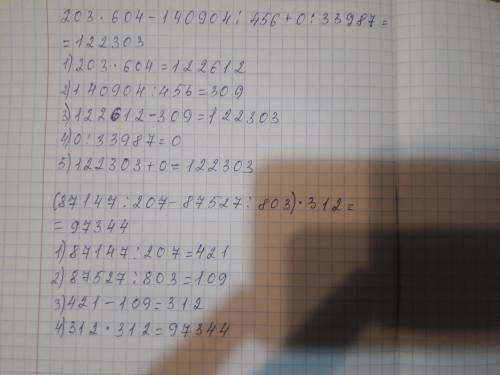 203·604-140904:456+0:33987=
=122303
1)203·604=122612
2)140904:456=309
3)122612-309=122303
4)0:33987=0
5)122303+0=122303
(87147:207-87527:803)·312=
=97344
1)87147:207=421
2)87527:803=109
3)421-109=312
4)312·312=97344